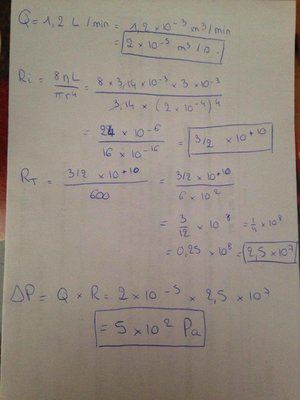 Q = 1,2 L/min = 1,2 × 10⁻³ m³/min
= 2 × 10⁻⁵ m³/s.
Ri = 8ηL / πr⁴ = 8 × 3,14 × 10⁻³ × 3 × 10⁻³ / 3,14 × (2 × 10⁻⁴)⁴
= 24 × 10⁻⁶ / 16 × 10⁻¹⁶ = 3/2 × 10⁺¹⁰
R_T = 3/2 × 10⁺¹⁰ / 600 = 3/2 × 10⁺¹⁰ / 6 × 10²
= 3/12 × 10⁸ = 1/4 × 10⁸
= 0,25 × 10⁸ = 2,5 × 10⁷
ΔP = Q × R = 2 × 10⁻⁵ × 2,5 × 10⁷
= 5 × 10² Pa